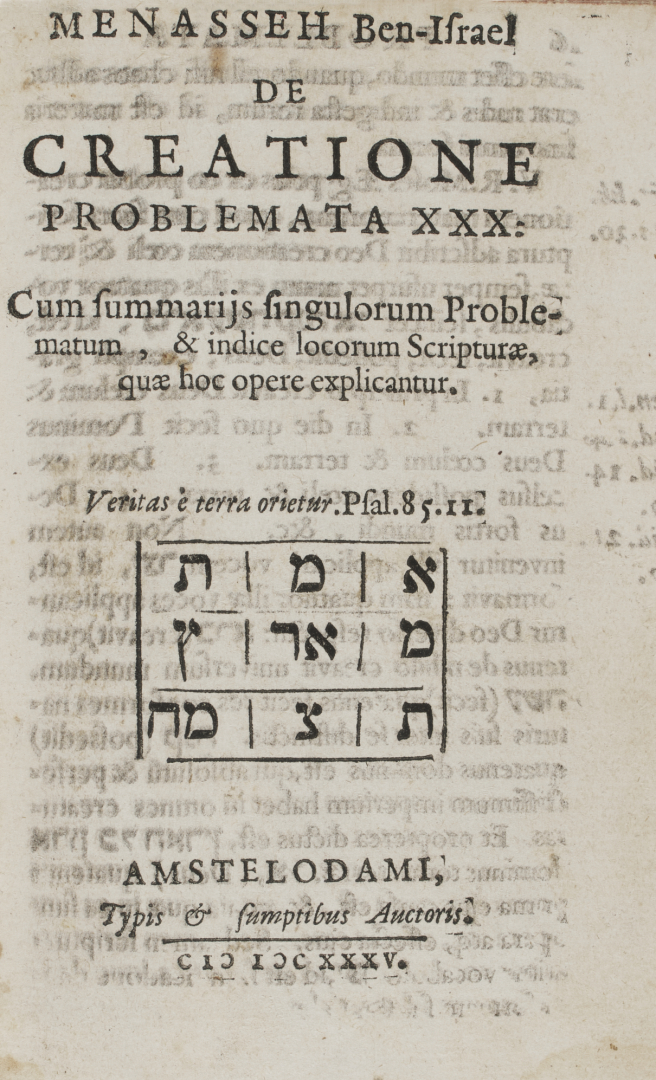 MENASSEH Ben-Iſrael
DE
CREATIONE
PROBLEMATA XXX:
Cum ſummarijs ſingulorum Proble-
matum, & indice locorum Scripturæ,
quæ hoc opere explicantur.
Veritas è terra orietur. Pſal. 85. 11.
א | מ | ת
מ | אר | ץ
ת | צ | מח
AMSTELODAMI,
Typis & ſumptibus Auctoris.
CIↃ IↃC XXXV.